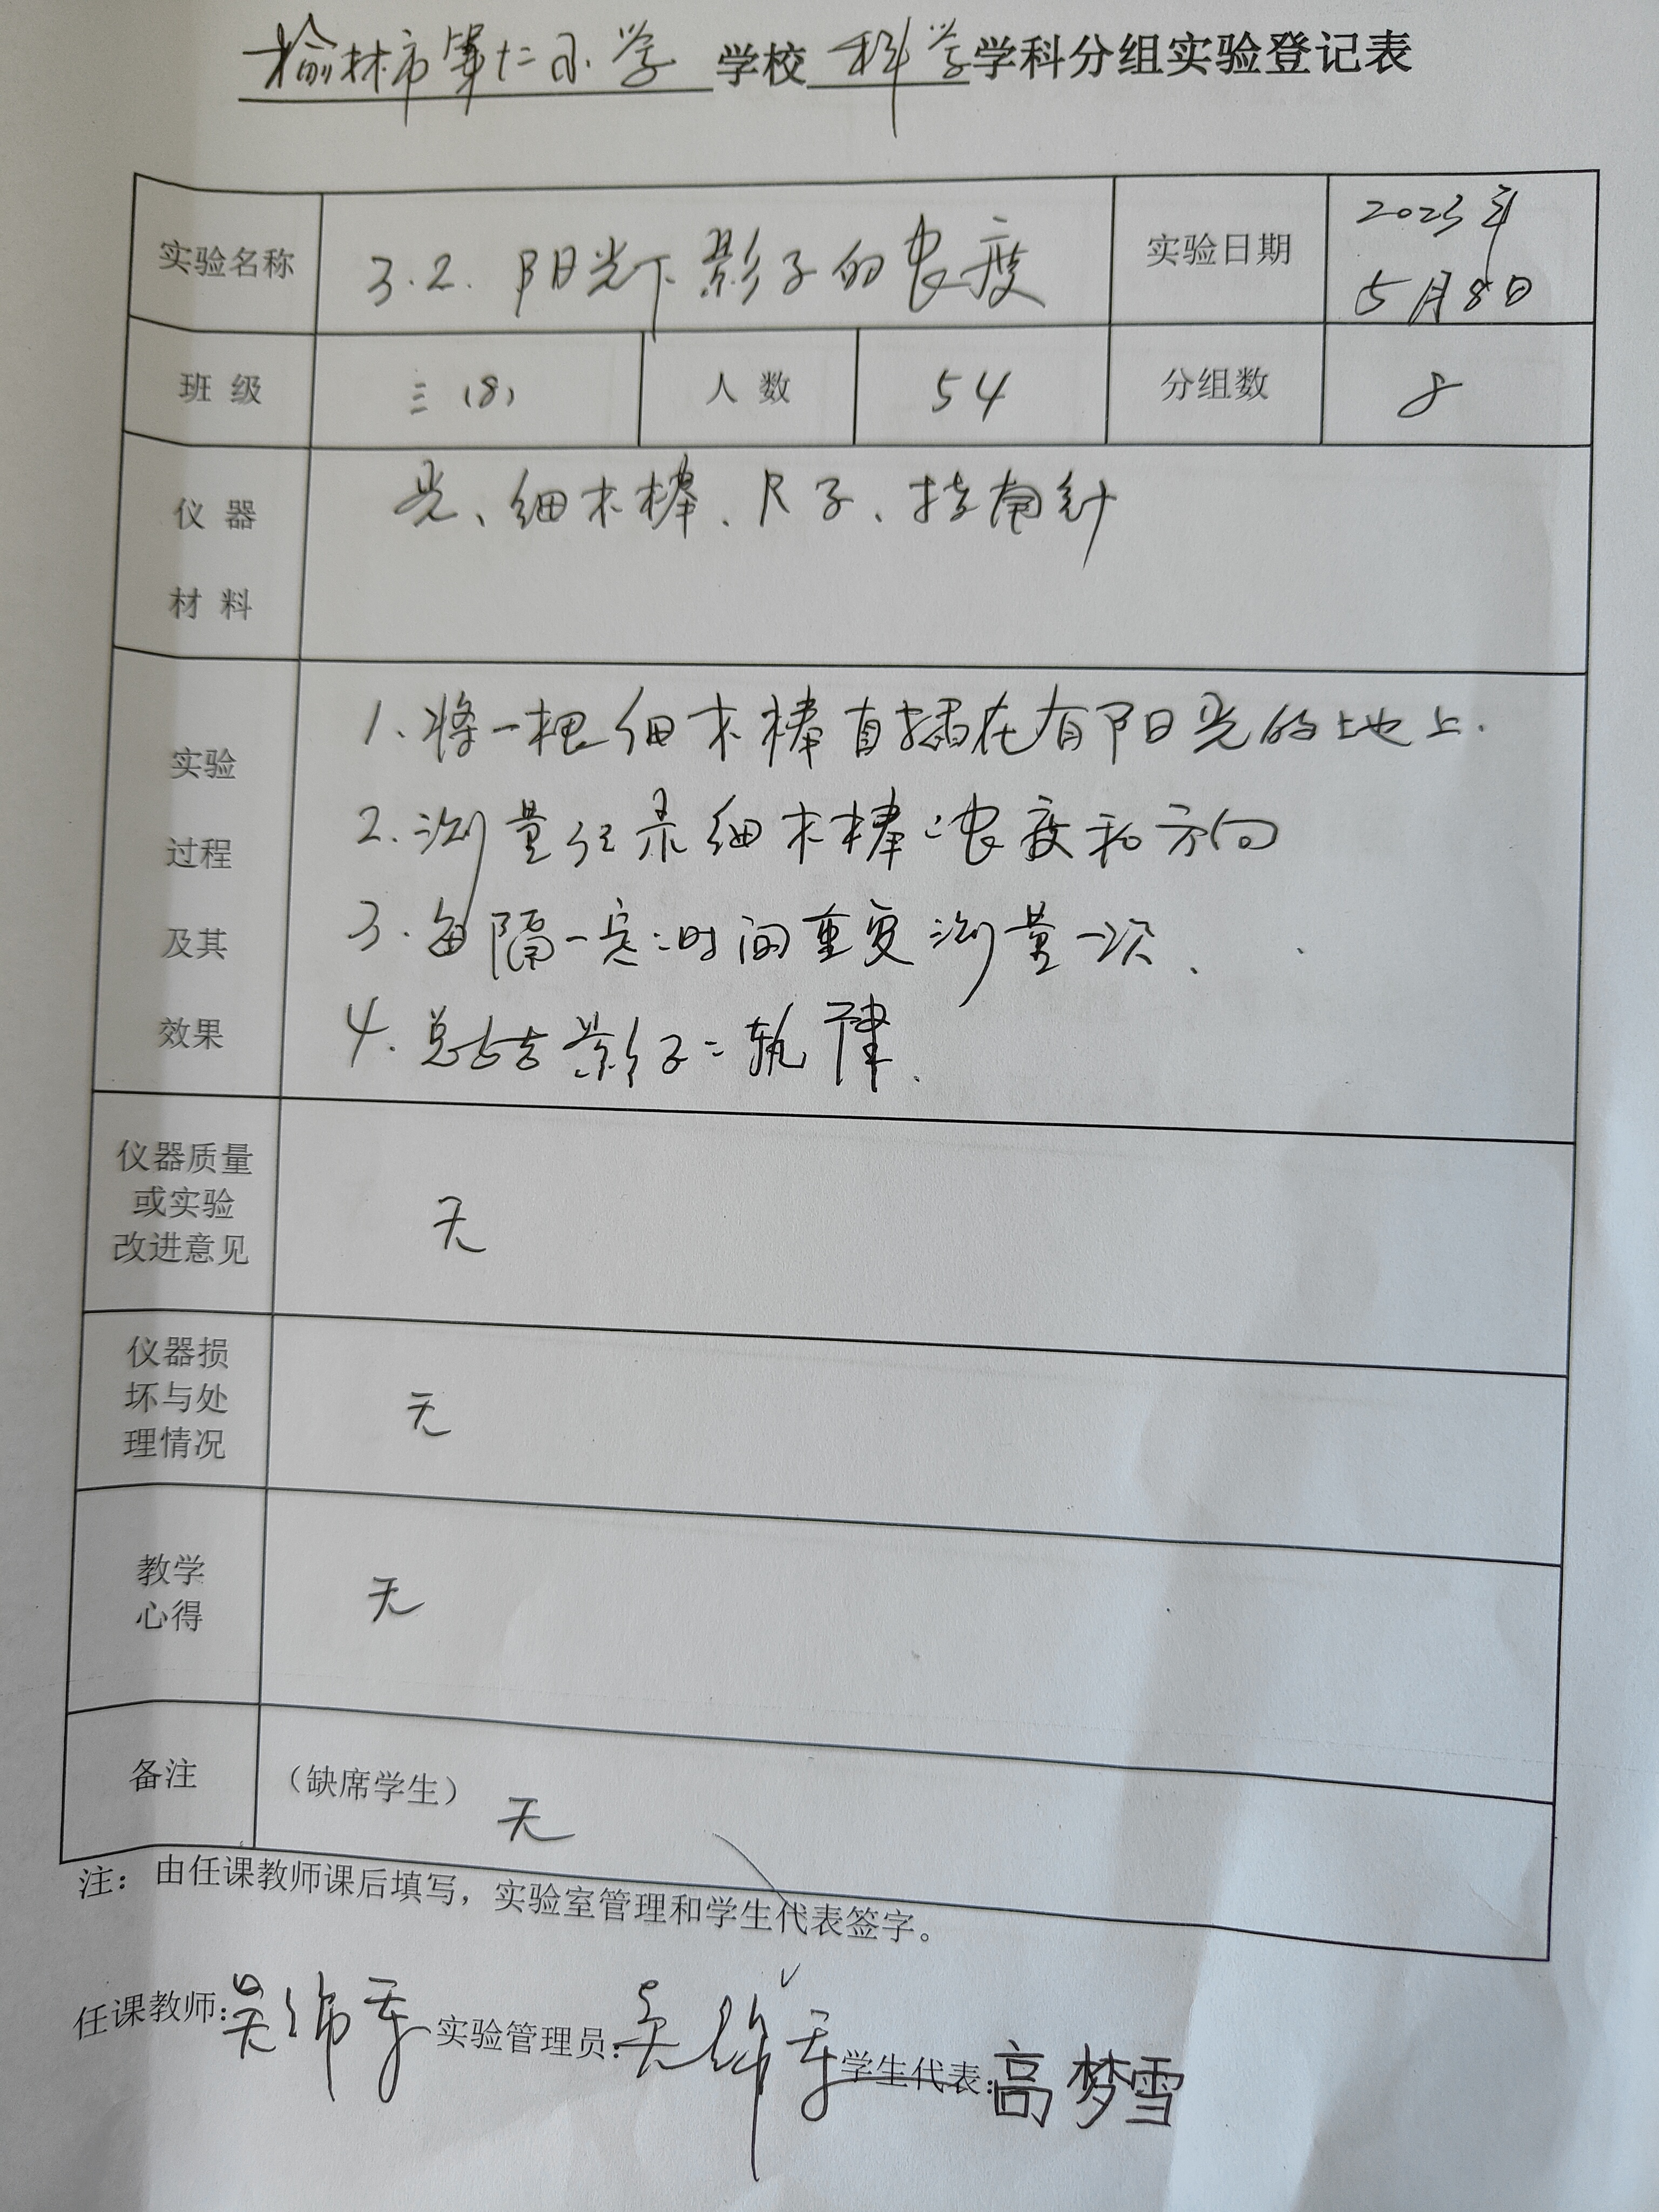 榆林市第十二小学 学校 科学 学科分组实验登记表
实验名称 3.2. 阳光下影子的长度 实验日期 2023年5月8日
班级 三(8) 人数 54 分组数 8
仪器材料 光、细木棒、尺子、指南针
实验过程及其效果
1.将一根细木棒直插在有阳光的土地上.
2.测量记录细木棒的长度和方向
3.每隔一定时间重复测量一次、
4.总结影子的轨律.
仪器质量或实验改进意见 无
仪器损坏与处理情况 无
教学心得 无
备注 (缺席学生) 无
注：由任课教师课后填写，实验室管理和学生代表签字。
任课教师: 吴 实验管理员: 吴 学生代表: 高梦雪